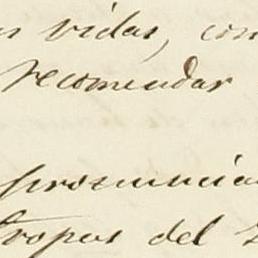 vidas, con
recomendar
pronuncia
tropas del